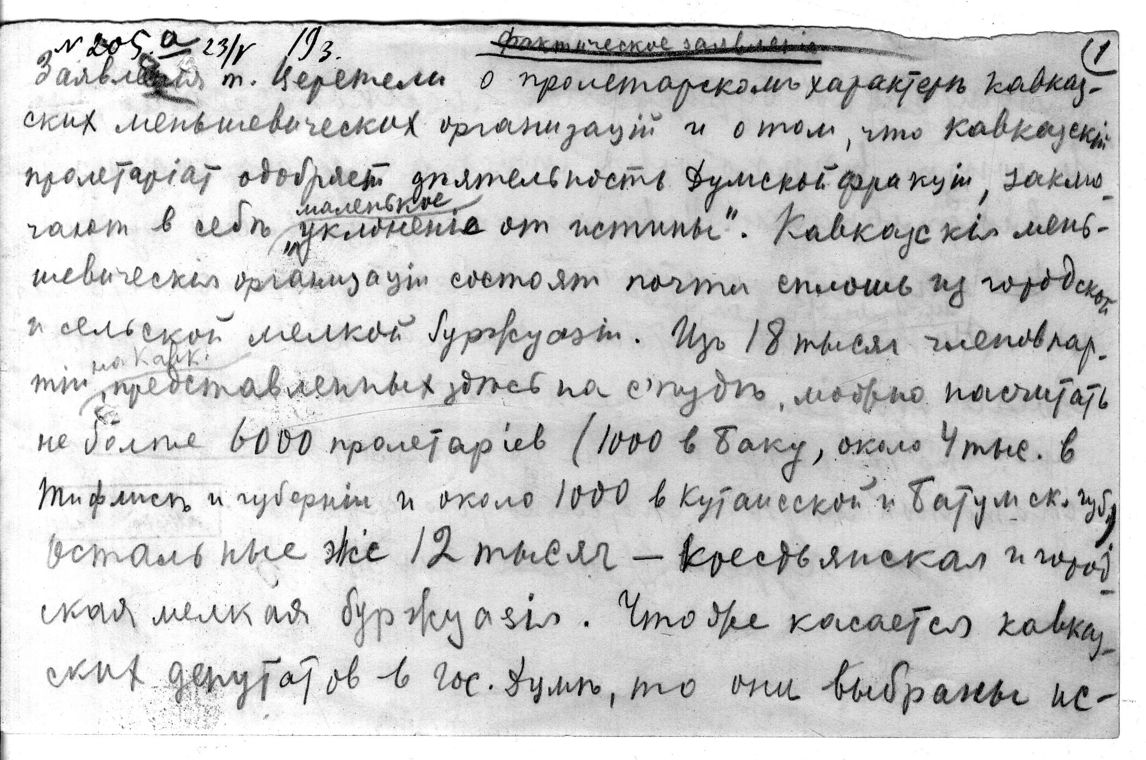 N 205.а 23/V 19 з. Фактическое заявленіе (1
Заявленія т. Церетели о пролетарскомъ характерѣ кавказ-
ских меньшевических организацій и о том, что кавказскій
пролетаріат одобряет дѣятельность Думской фракціи, заклю-
маленькое
чают в себѣ „уклоненіе от истины". Кавказскія мень-
шевическія организаціи состоят почти сплошь из городской
и сельской мелкой буржуазіи. Изъ 18 тысяч членов пар-
на Кавк.
тіи, представленных здѣсь на съѣздѣ, можно насчитать
не болѣе 6000 пролетаріев (1000 в Баку, около 4 тыс. в
Тифлисѣ и губерніи и около 1000 в Кутаисской и Батумск. губ.)
Остальные же 12 тысяч — крестьянская и город-
ская мелкая буржуазія. Что же касается кавказ-
ских депутатов в Гос. Думѣ, то они выбраны ис-